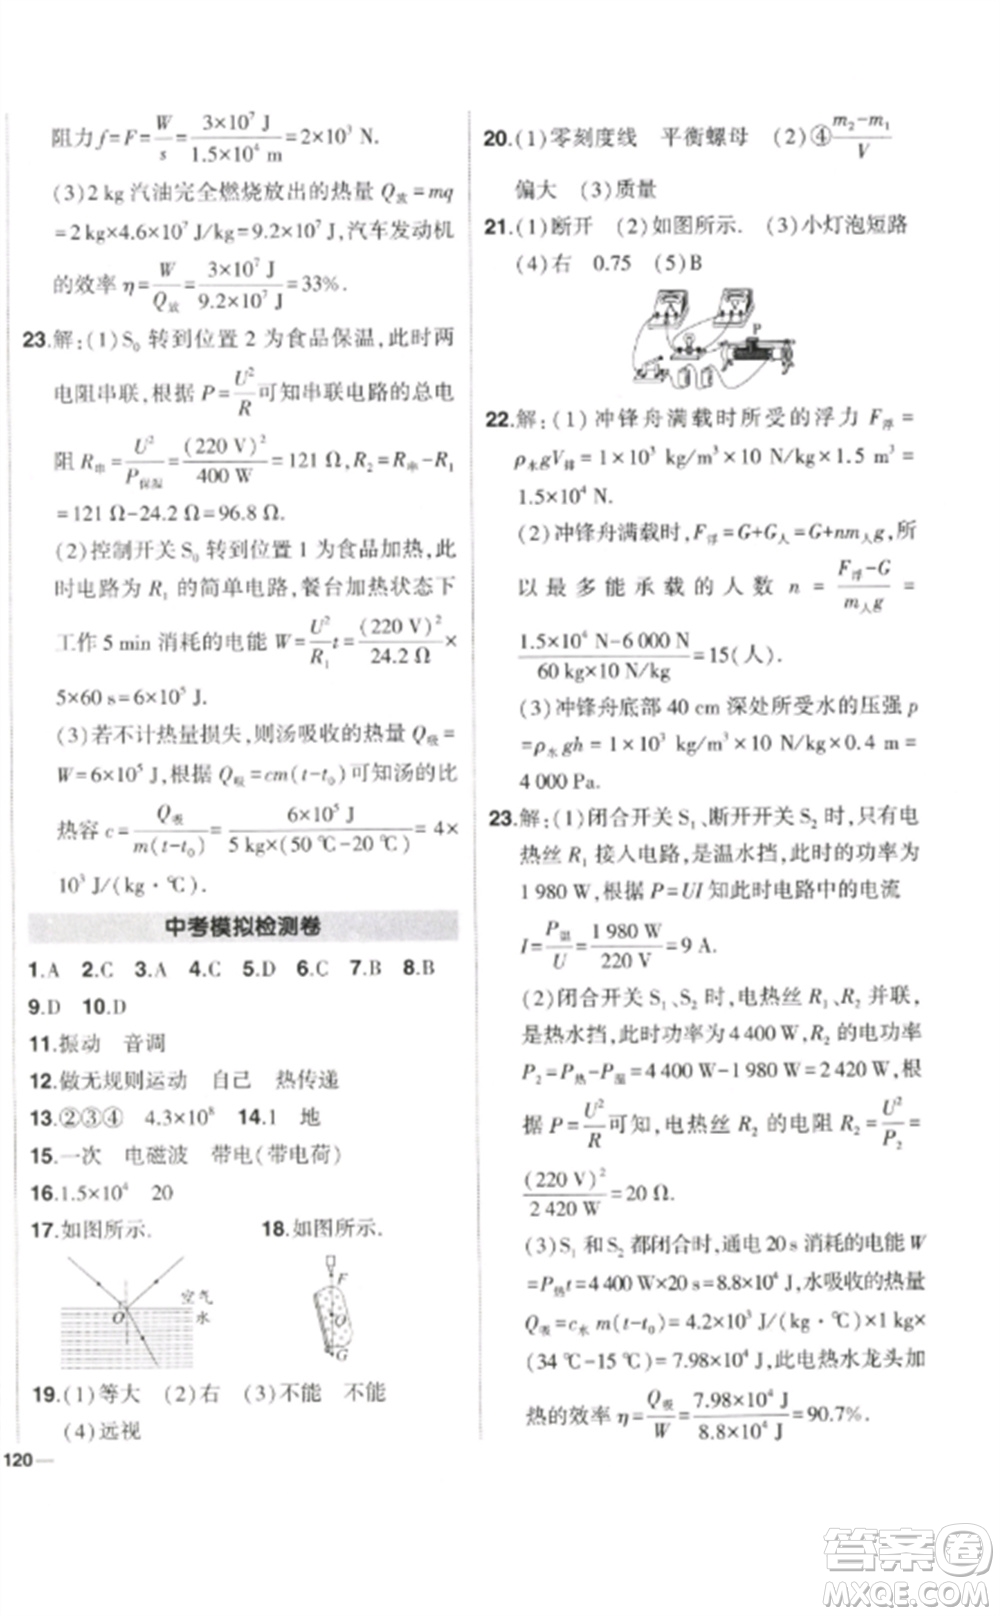 阻力 f=F=W/s=3×10⁷ J/1.5×10⁴ m=2×10³ N.
(3)2 kg 汽油完全燃烧放出的热量 Q放=mq
=2 kg×4.6×10⁷ J/kg=9.2×10⁷ J,汽车发动机
的效率 η=W/Q放=3×10⁷ J/9.2×10⁷ J=33%.
23.解:(1)S₀ 转到位置 2 为食品保温,此时两
电阻串联,根据 P=U²/R可知串联电路的总电
阻 R串=U²/P保温=(220 V)²/400 W=121 Ω,R₂=R串-R₁
=121 Ω-24.2 Ω=96.8 Ω.
(2)控制开关 S₀ 转到位置 1 为食品加热,此
时电路为 R₁ 的简单电路,餐台加热状态下
工作 5 min 消耗的电能 W=U²/R₁t=(220 V)²/24.2 Ω×
5×60 s=6×10⁵ J.
(3)若不计热量损失,则汤吸收的热量 Q吸=
W=6×10⁵ J,根据 Q吸=cm(t-t₀)可知汤的比
热容 c=Q吸/m(t-t₀)=6×10⁵ J/5 kg×(50 ℃-20 ℃)=4×
10³ J/(kg·℃).
中考模拟检测卷
1.A 2.C 3.A 4.C 5.D 6.C 7.B 8.B
9.D 10.D
11.振动 音调
12.做无规则运动 自己 热传递
13.②③④ 4.3×10⁸ 14.1 地
15.一次 电磁波 带电(带电荷)
16.1.5×10⁴ 20
17.如图所示. 18.如图所示.
O 空气 水
F O G
19.(1)等大 (2)右 (3)不能 不能
(4)远视
120
20.(1)零刻度线 平衡螺母 (2)④m₂-m₁/V
偏大 (3)质量
21.(1)断开 (2)如图所示. (3)小灯泡短路
(4)右 0.75 (5)B
P
22.解:(1)冲锋舟满载时所受的浮力 F浮=
ρ水gV排=1×10³ kg/m³×10 N/kg×1.5 m³=
1.5×10⁴ N.
(2)冲锋舟满载时,F浮=G+G人=G+nm人g,所
以最多能承载的人数 n=F浮-G/m人g=
1.5×10⁴ N-6 000 N/60 kg×10 N/kg=15(人).
(3)冲锋舟底部 40 cm 深处所受水的压强 p
=ρ水gh=1×10³ kg/m³×10 N/kg×0.4 m=
4 000 Pa.
23.解:(1)闭合开关 S₁、断开开关 S₂ 时,只有电
热丝 R₁ 接入电路,是温水挡,此时的功率为
1 980 W,根据 P=UI 知此时电路中的电流
I=P温/U=1 980 W/220 V=9 A.
(2)闭合开关 S₁、S₂ 时,电热丝 R₁、R₂ 并联,
是热水挡,此时功率为 4 400 W,R₂ 的电功率
P₂=P热-P温=4 400 W-1 980 W=2 420 W,根
据 P=U²/R可知,电热丝 R₂ 的电阻 R₂=U²/P₂=
(220 V)²/2 420 W=20 Ω.
(3)S₁ 和 S₂ 都闭合时,通电 20 s 消耗的电能 W
=P热t=4 400 W×20 s=8.8×10⁴ J,水吸收的热量
Q吸=c水m(t-t₀)=4.2×10³ J/(kg·℃)×1 kg×
(34 ℃-15 ℃)=7.98×10⁴ J,此电热水龙头加
热的效率 η=Q吸/W=7.98×10⁴ J/8.8×10⁴ J=90.7%.
答案卷
MXQE.COM